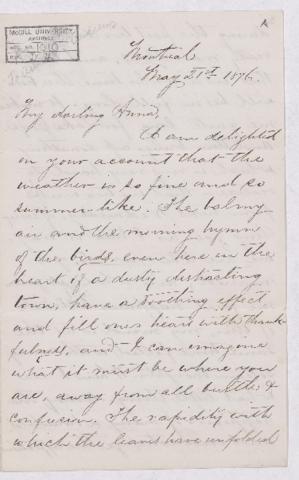 McGILL UNIVERSITY
ARCHIVES
ACC. NO. 1010
REF.
Montreal
May 21st 1876.
My darling Anna,
I am delighted
on your account that the
weather is so fine and so
summer-like. The balmy
air and the morning hymn
of the birds, even here in the
heart of a dusty distracting
town, have a soothing effect
and fill ones heart with thank-
fulness, and I can imagine
what it must be where you
are, away from all bustle &
confusion. The rapidity with
which the leaves have unfolded